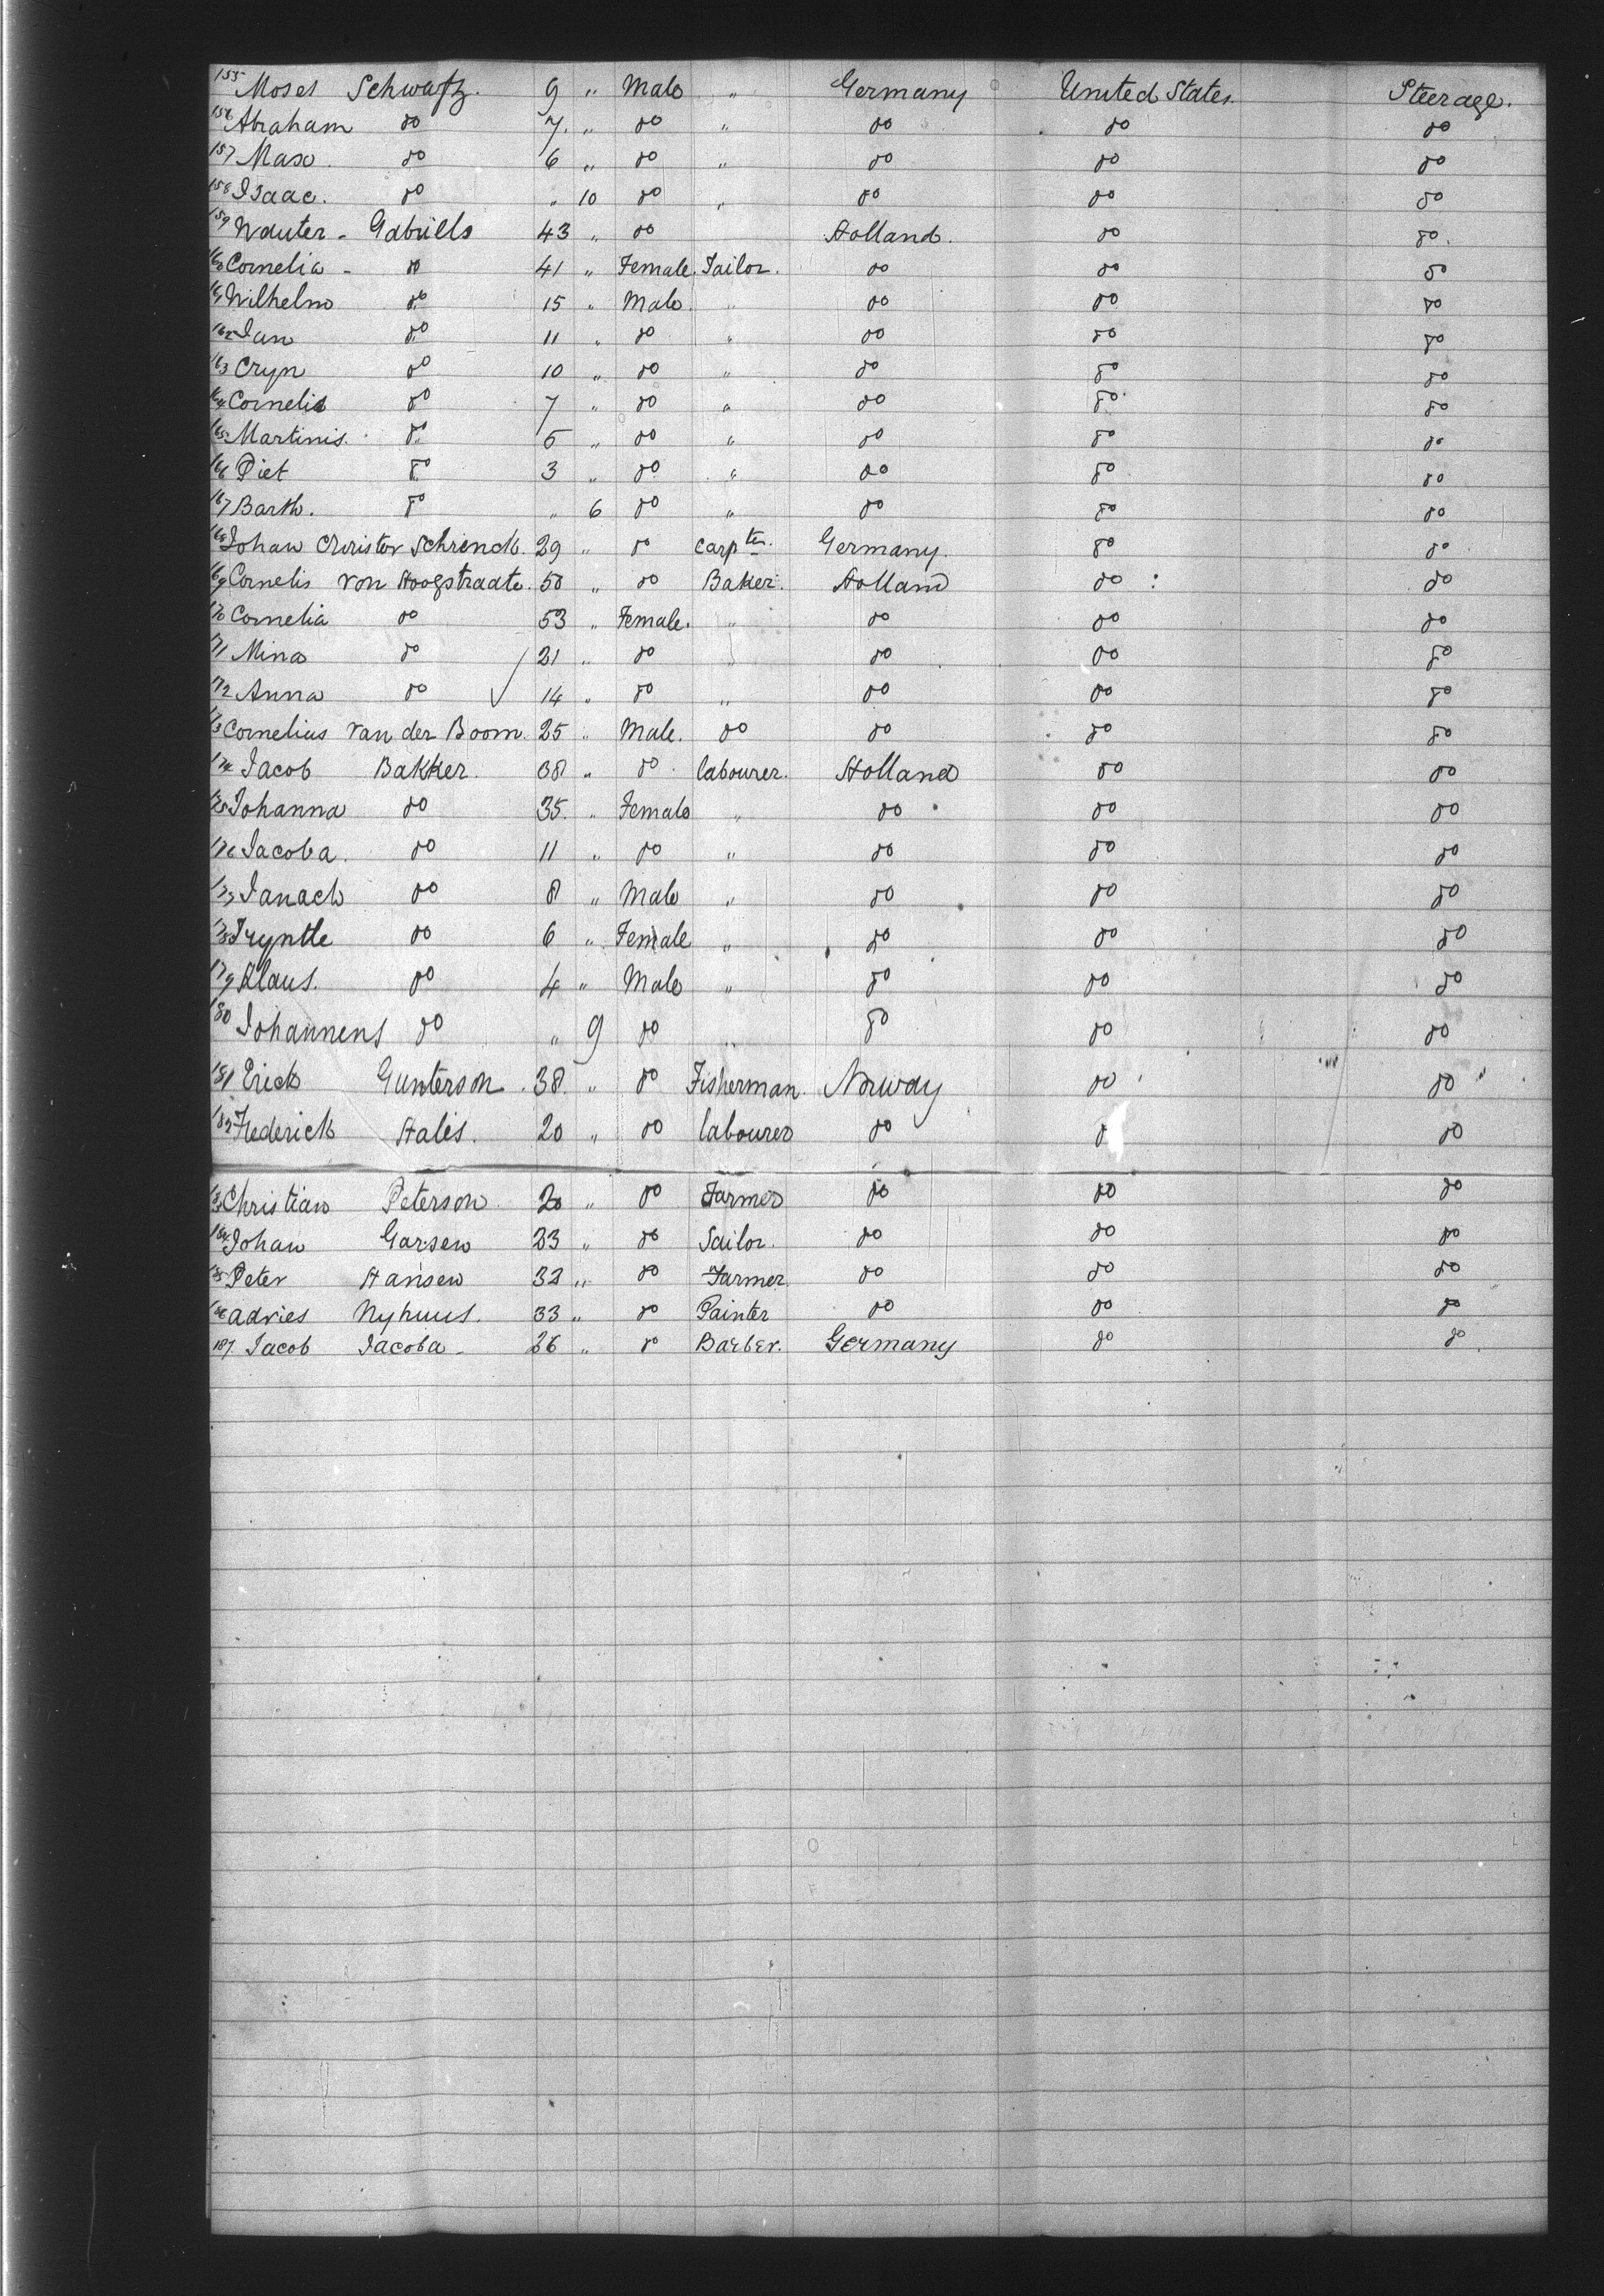 155 Moses Schwartz. 9 " Male " Germany United States. Steerage.
156 Abraham do 7. " do " do do do
157 Max do 6 " do " do do do
158 Isaac. do " 10 do " do do do
159 Wouter - Gabriells 43 " do Holland. do do.
160 Cornelia - do 41 " Female. Tailor. do do do
161 Wilhelm do 15 " Male. " do do do
162 Jan do 11 " do " do do do
163 Cryn do 10 " do " do do do
164 Cornelis do 7 " do " do do do
165 Martinis. do 5 " do " do do do
166 Piet do 3 " do " do do do
167 Barth. do " 6 do " do do do
168 Johan Christov Schrenck. 29 " do carpter. Germany. do do
169 Cornelis von Hoogstraate. 50 " do Baker. Holland do : do
170 Cornelia do 53 " Female. " do do do
171 Mina do 21 " do " do do do
172 Anna do 14 " do " do do do
173 Cornelius van der Boom. 25 " Male. do do do do
174 Jacob Bakker. 38 " do labourer. Holland do do
175 Johanna do 35. " Female " do do do
176 Jacoba. do 11 " do " do do do
177 Janach do 8 " Male " do do do
178 Tryntle do 6 " Female " do do do
179 Klaus. do 4 " Male " do do do
180 Johannens do " 9 do " do do do
181 Erick Gunterson. 38. " do Fisherman. Norway do do "
182 Frederick Hales. 20 " do labourer do do do
183 Christian Peterson. 20 " do Farmer do do do
184 Johan Garsen 23 " do Sailor. do do do
185 Peter Hansen 32 " do Farmer. do do do
186 adries Nyhuus. 33 " do Painter do do do
187. Jacob Jacoba - 26 " do Barber. Germany do do.